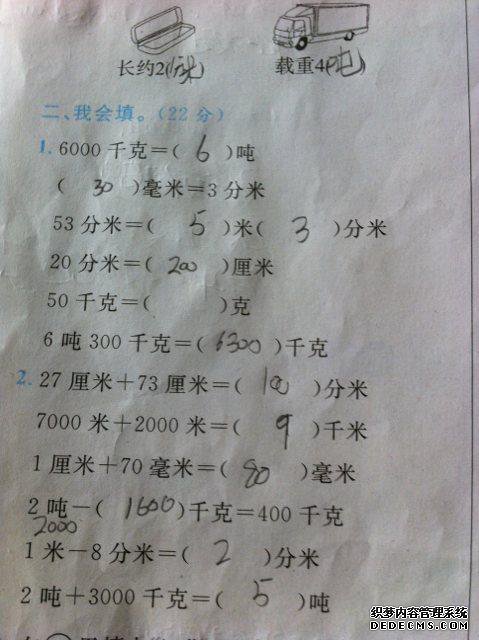 长约2(分米) 载重4(吨)
二、我会填。(22分)
1. 6000千克=( 6 )吨
( 30 )毫米=3分米
53分米=( 5 )米( 3 )分米
20分米=( 200 )厘米
50千克=( )克
6吨300千克=( 6300 )千克
2. 27厘米+73厘米=( 10 )分米
7000米+2000米=( 9 )千米
1厘米+70毫米=( 80 )毫米
2吨-( 1600 )千克=400千克
2000
1米-8分米=( 2 )分米
2吨+3000千克=( 5 )吨
织梦内容管理系统
DEDECMS.COM